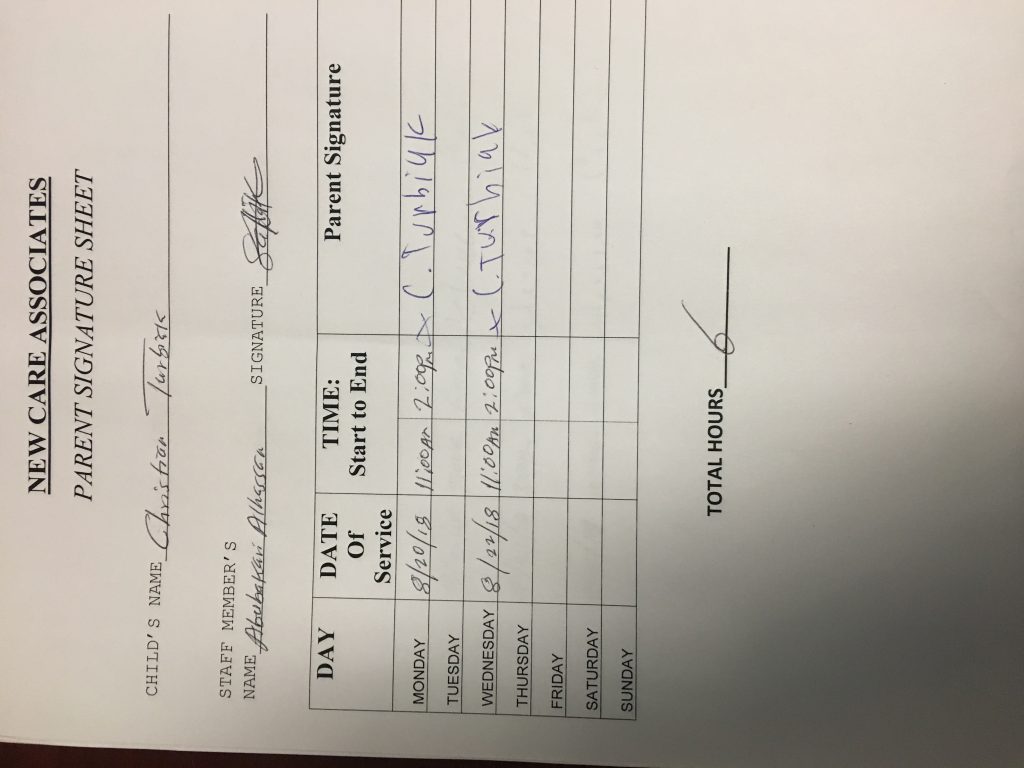 NEW CARE ASSOCIATES
PARENT SIGNATURE SHEET
CHILD'S NAME Christian Turbiak
STAFF MEMBER'S
NAME Abubakari Alhassan SIGNATURE
DAY DATE Of Service TIME: Start to End Parent Signature
MONDAY 8/20/18 11:00AM 2:00pm x C. Turbiak
TUESDAY
WEDNESDAY 8/22/18 11:00AM 2:00pm x C. Turbiak
THURSDAY
FRIDAY
SATURDAY
SUNDAY
TOTAL HOURS 6